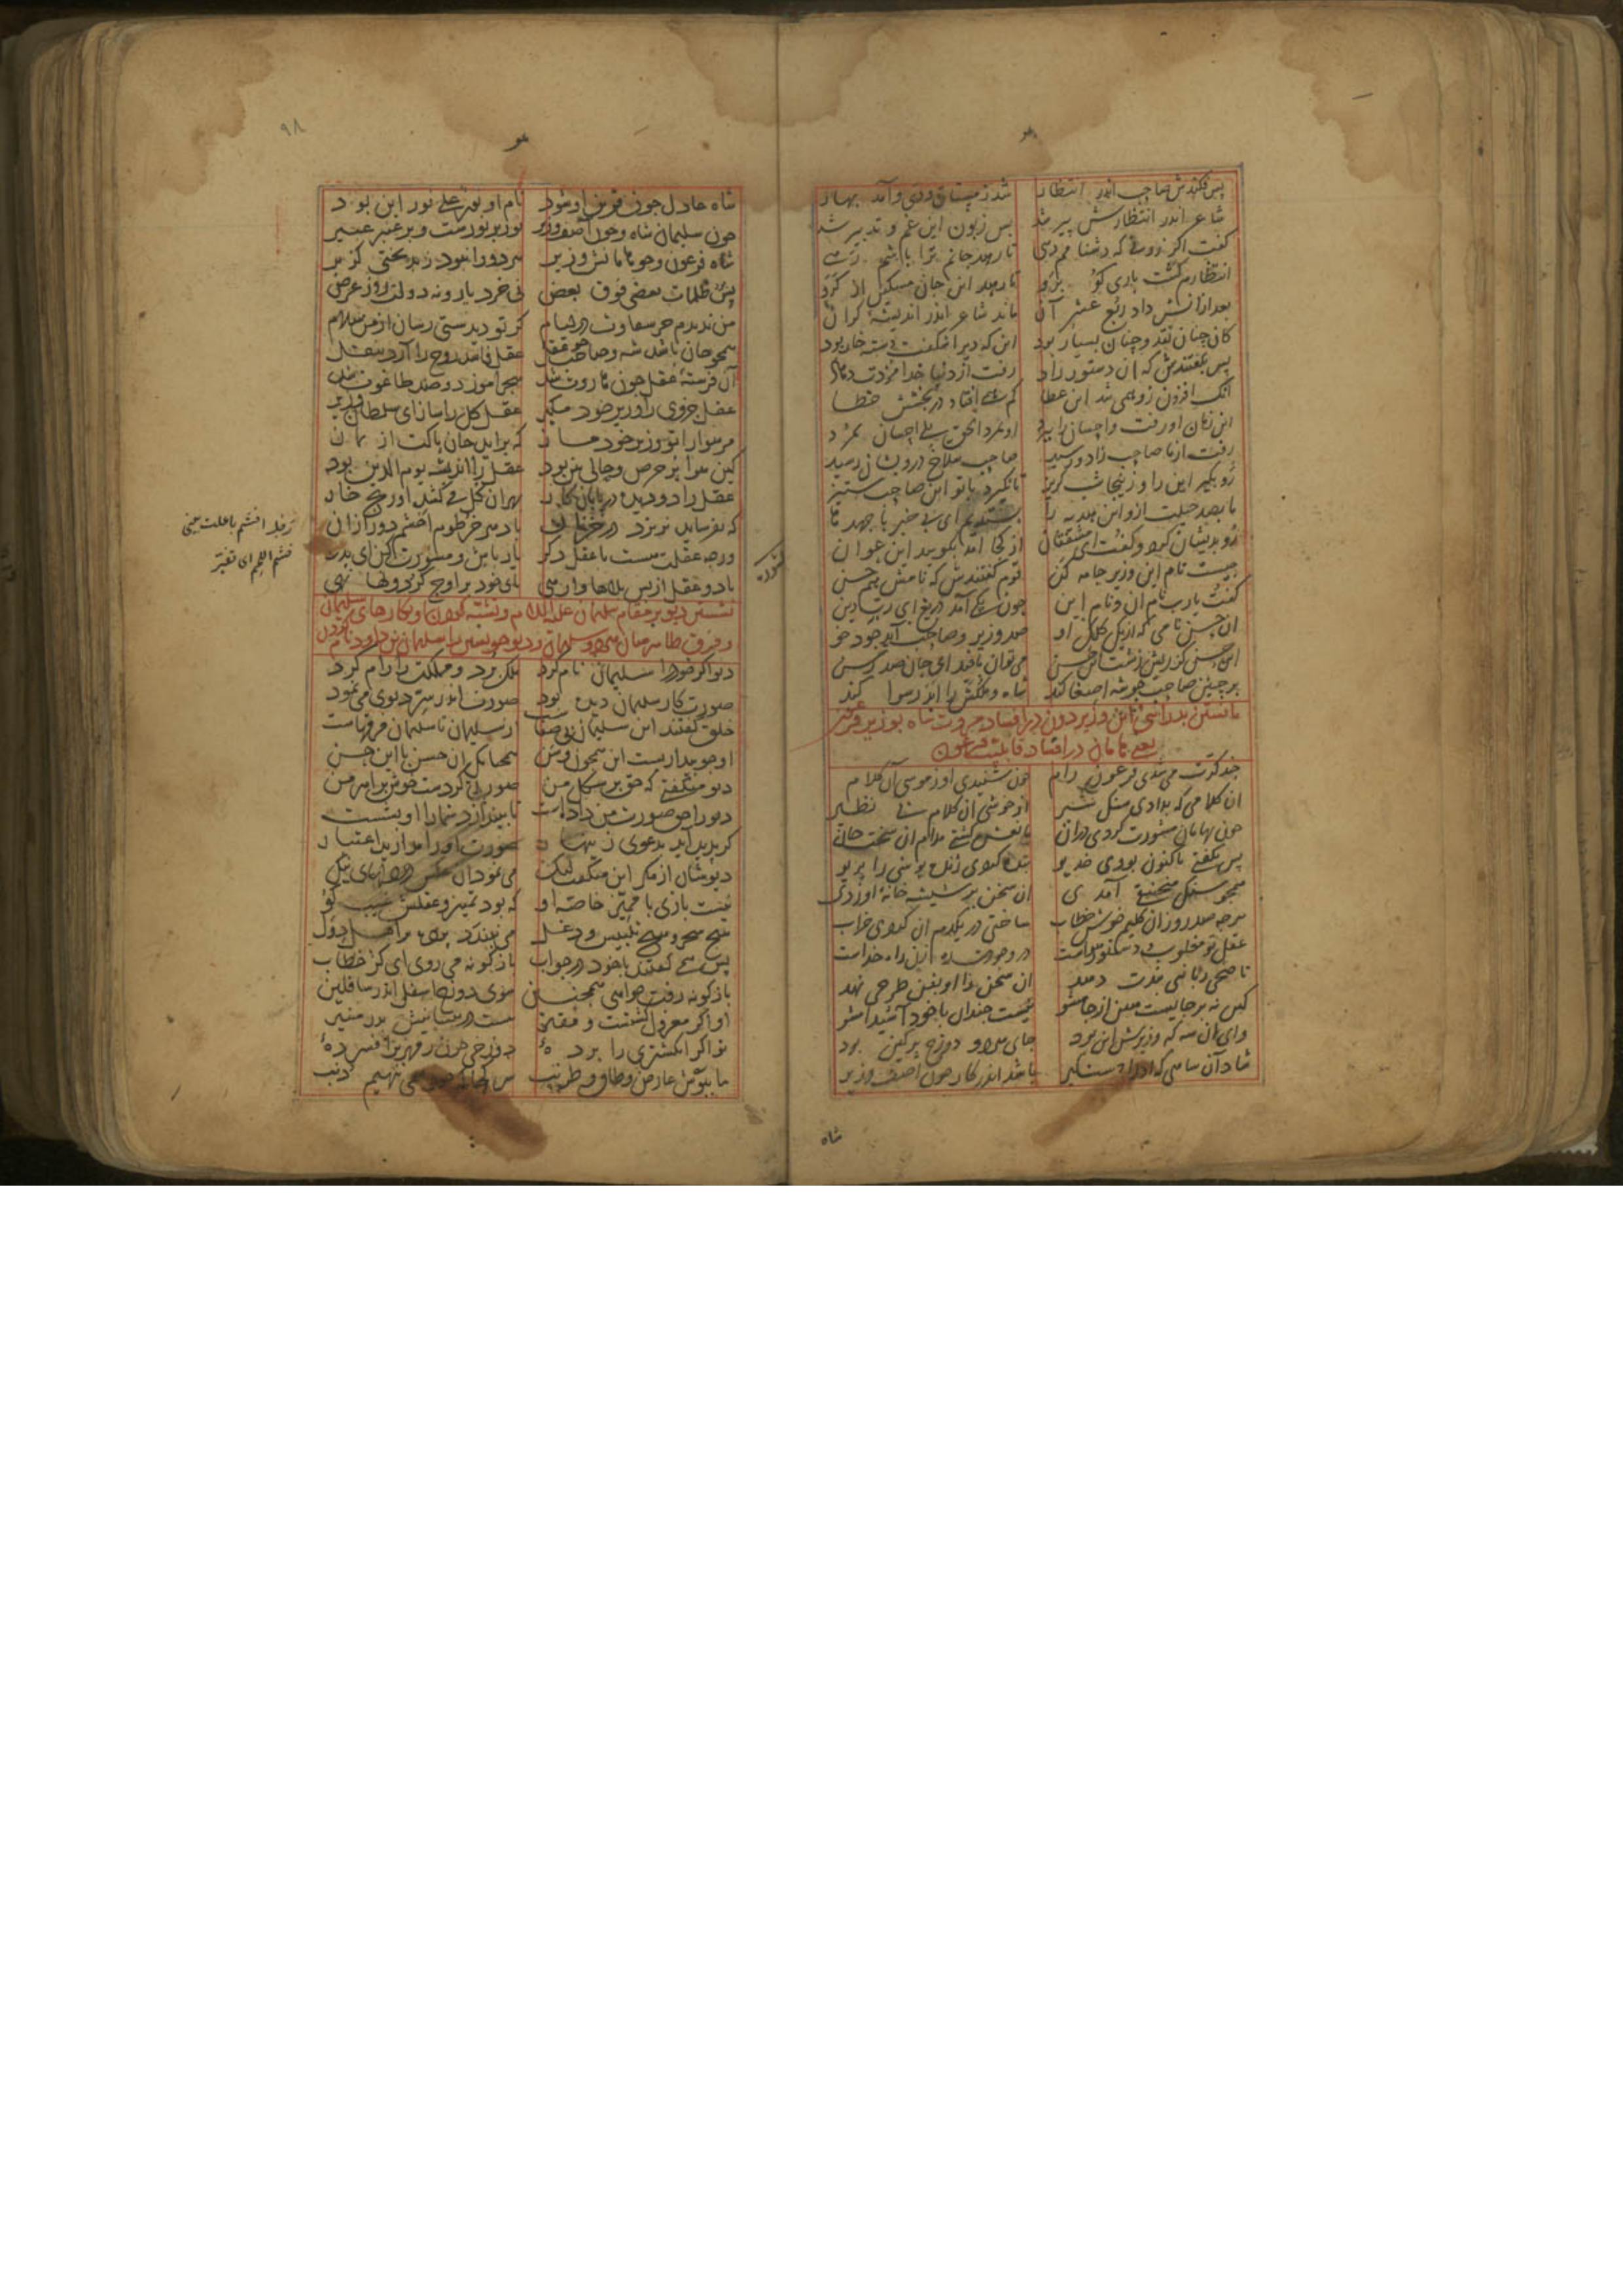 پس فکندش صاحب اندر انتظار شد زمستان و دی و آمد بهار
شاعر اندر انتظارش پیر شد پس زبون این غم و تدبیر شد
گفت اگر زر نه که دشنامم دهی تا رهد جانم ترا باشم رهی
انتظارم کشت باری گو برو تا رهد این جان مسکین از گرو
بعد ازانش داد ربع عشر آن ماند شاعر اندر اندیشه گران
کان چنان نقد و چنان بسیار بود این که دیر اشکفت دسته خار بود
پس بگفتندش که ان دستور راد رفت از دنیا خدا مزدت دهاد
که مضاعف زو همی شد این عطا کم همی افتاد در بخشش خطا
این زمان او رفت و احسان را ببرد او نمرد الحق بلی احسان بمرد
رفت از ما صاحب راد و رشید صاحب سلاخ درویشان رسید
رو بگیر این را و زینجا شب گریز تا نگیرد با تو این صاحب ستیز
ما بصد حیلت ازو این هدیه را بستدیم ای بی خبر از جهد ما
رو بدیشان کرد و گفت ای مشفقان از کجا آمد بگویید این عوان
چیست نام این وزیر جامه کن قوم گفتندش که نامش هم حسن
گفت یا رب نام آن و نام این چون یکی آمد دریغ ای رب دین
ان حسن نامی که از یک کلک او صد وزیر و صاحب آید جود خو
این حسن کز ریش زشت این حسن می توان بافید ای جان صد رسن
بر چنین صاحب چو شه اصغا کند شاه و ملکش را ابد رسوا کند
مانستن بدرایی این وزیر دون در افساد مروت شاه بوزیر فرعون
یعنی هامان در افساد قابلیت فرعون
چند کرت می شدی فرعون رام چون شنیدی او ز موسی آن کلام
ان کلامی که بدادی سنگ شیر از خوشی ان کلام بی نظیر
چون بهامان مشورت کردی دران
پس بگفتی تا کنون بودی خدیو بنده گردی ژنده پوشی را بریو
همچو سنگ منجنیقی آمدی ان سخن بر شیشه خانه او زدی
هرچه صد روز ان کلیم خوش خطاب ساختی در یکدم ان کردی خراب
عقل تو مغلوب دستور هواست در وجودت ره زن راه خداست
ناصحی ربانی پندت دهد ان سخن را او بفن طرحی نهد
کین نه بر جایست هین از جا مشو نیست چندان با خود آ شیدا مشو
وای ان شه که وزیرش این بود جای هر دو دوزخ پر کین بود
شاد آن شاهی که او را دستگیر باشد اندر کار چون اصف وزیر
شاه
۹۸
شاه عادل چون قرین او شود نام او نور علی نور این بود
چون سلیمان شاه و چون آصف وزیر نور بر نورست و بر عنبر عبیر
شاه فرعون و چو هامانش وزیر هر دو را نبود ز بدبختی گزیر
پس ظلمات بعضی فوق بعض نی خرد یار و نه دولت روز عرض
من ندیدم جز شقاوت در لئام گر تو دیدستی رسان از من سلام
همچو جان باشد شه و صاحب چو عقل عقل فاسد روح را آرد بنقل
آن فرشته عقل چون هاروت شد سحرآموز دو صد طاغوت شد
عقل جزوی را وزیر خود مگیر عقل کل را ساز ای سلطان وزیر
مر هوا را تو وزیر خود مساز که براید جان پاکت از نماز
کین هوا پر حرص و حالی بین بود عقل را اندیشه یوم الدین بود
عقل را دو دیده در پایان کار بهر ان گل می کشد او رنج خار
که نفرساید نریزد در خزان باد هر خرطوم اخشم دور ازان
ورچه عقلت هست با عقل دگر یار باش و مشورت کن ای پدر
با دو عقل از بس بلاها وارهی پای خود بر اوج گردونها نهی
نشستن دیو بر مقام سلیمان علیه السلام و تشبه کردن او بکارهای سلیمان
و فرق ظاهر میان هر دو سلیمان و دیو خویشتن را سلیمان بن داود نام کردن
دیو اگر خود را سلیمان نام کرد ملک برد و مملکت را رام کرد
صورت کار سلیمان دیده بود صورت اندر سر دیوی می نمود
خلق گفتند این سلیمان بی صفاست از سلیمان تا سلیمان فرقهاست
او چو بیداریست این همچون وسن همچنانکه ان حسن با این حسن
دیو میگفتی که حق بر شکل من صورتی کردست خوش بر اهرمن
دیو را حق صورت من داده است تا نیندازد شما را او بشست
گر پدید آید بدعوی زینهار صورت او را مدارید اعتبار
دیوشان از مکر این میگفت لیک می نمود ان عکس در دلهای نیک
نیست بازی با ممیز خاصه او که بود تمییز و عقلش غیب گو
هیچ سحر و هیچ تلبیس و دغل می نبندد پرده بر اهل دول
پس همی گفتند با خود در جواب باژگونه می روی ای کژ خطاب
باژگونه رفت خواهی همچنین سوی دوزخ اسفل اندر سافلین
او اگر معزول گشتست و فقیر هست در پیشانیش بدر منیر
تو اگر انگشتری را برده دوزخی چون زمهریر افسرده
ما ببوش عارض و طاق و طرنب سر کجا که خود همی ننهیم سنب